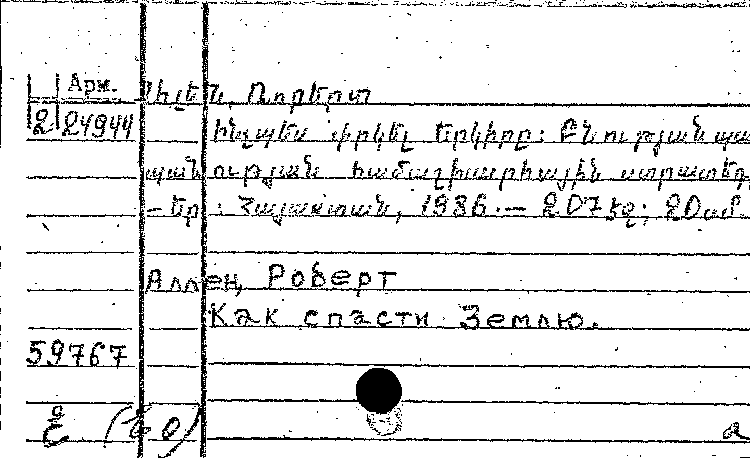 Арм.
Ալեն, Ռոբերտ
2 24944 Ինչպես փրկել երկիրը: Բնության պա
պանության համաշխարհային ստրատեգ
- Եր.: Հայաստան, 1986.— 207 էջ; 20 սմ.
Аллен, Роберт
Как спасти Землю.
59767
(60) a